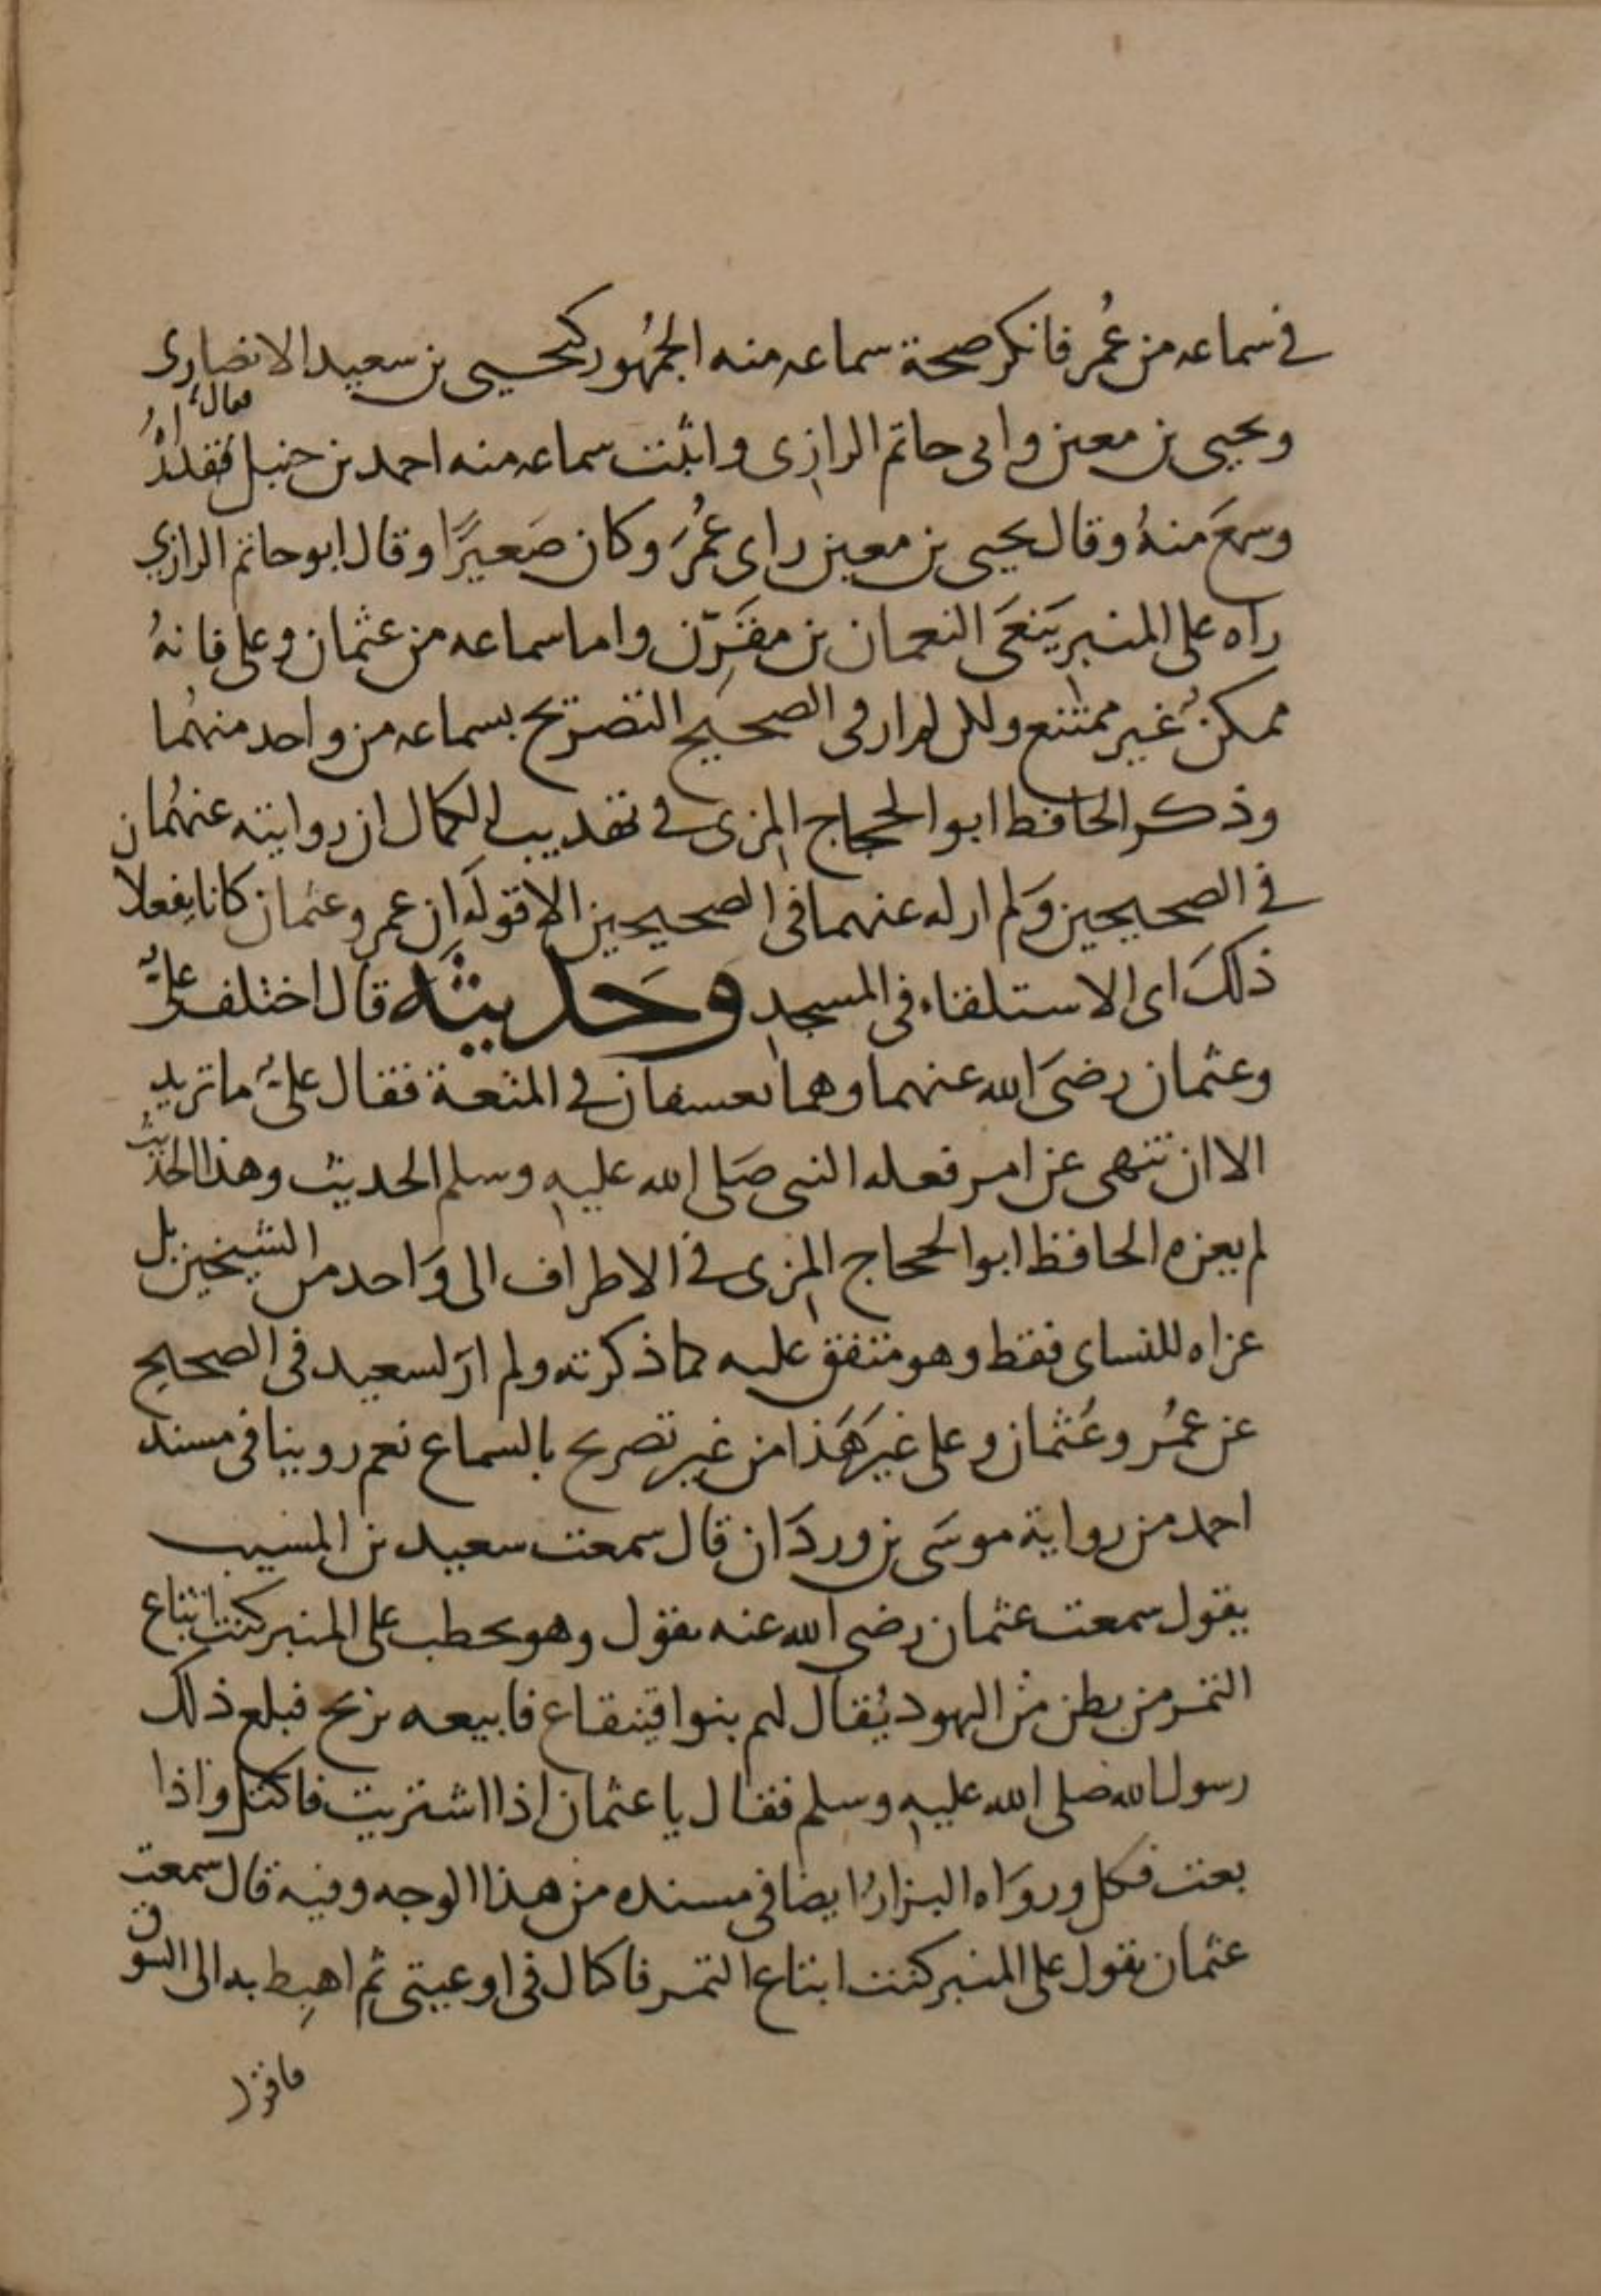 في سماعه من عُمر فانكر صحة سماعه منه الجمهُور كيحيى بن سعيد الانصارى
ويحيى بن معين وابى حاتم الرازى واثبت سماعه منه احمد بن حنبل فقال قد رآهُ
وسمعَ منهُ وقال يحيى بن معين راى عمُرَ وكان صَغيرًا وقال ابو حاتم الرازي
راه على المنبر يَنعَى النعمان بن مقَرِّن واما سماعه من عثمان وعلى فانهُ
ممكنٌ غير ممتنع ولكن لم ار فى الصحيح التصريح بسماعه من واحد منهُما
وذكر الحافظ ابو الحجاج المزى في تهذيب الكمال ان روايته عنهُما ن
في الصحيحين وَلم ار له عنهما فى الصحيحين الا قوله ان عمر وعثمان كانا يفعلا
ذلكَ اى الاستلقاء فى المسجد وحَديثه قال اختلف علىٌّ
وعثمان رضىَ الله عنهما وهما بعسفان في المتعة فقال علىٌّ ما تريد
الا ان تنهى عن امر فعله النبى صَلى الله عليه وسلم الحديث وهذا الحديث
لم يعزه الحافظ ابو الحجاج المزى في الاطراف الى وَاحد من الشيخين بل
عزاه للنساى فقط وهو متفق عليه كما ذكرته ولم ارَ لسعيد فى الصحيح
عن عمُر وعُثمان وعلى غيرَ هَذا من غير تصريح بالسماع نعم روينا فى مسند
احمد من رواية موسَى بن وردَان قال سمعت سعيد بن المسيب
يقول سمعت عثمان رضى الله عنه يقول وهو يخطب على المنبر كنت ابتاع
التمر من بطن من اليهود يُقال لهم بنوا قينقاع فابيعه بربح فبلغ ذلك
رسول الله صلى الله عليه وسلم فقال يا عثمان اذا اشتريت فاكتل واذا
بعت فكل وروَاه البزارُ ايضا فى مسنده من هذا الوجه وفيه قال سمعت
عثمان يقول على المنبر كنت ابتاع التمر فاكتال فى اوعيتى ثم اهبِط به الى السوق